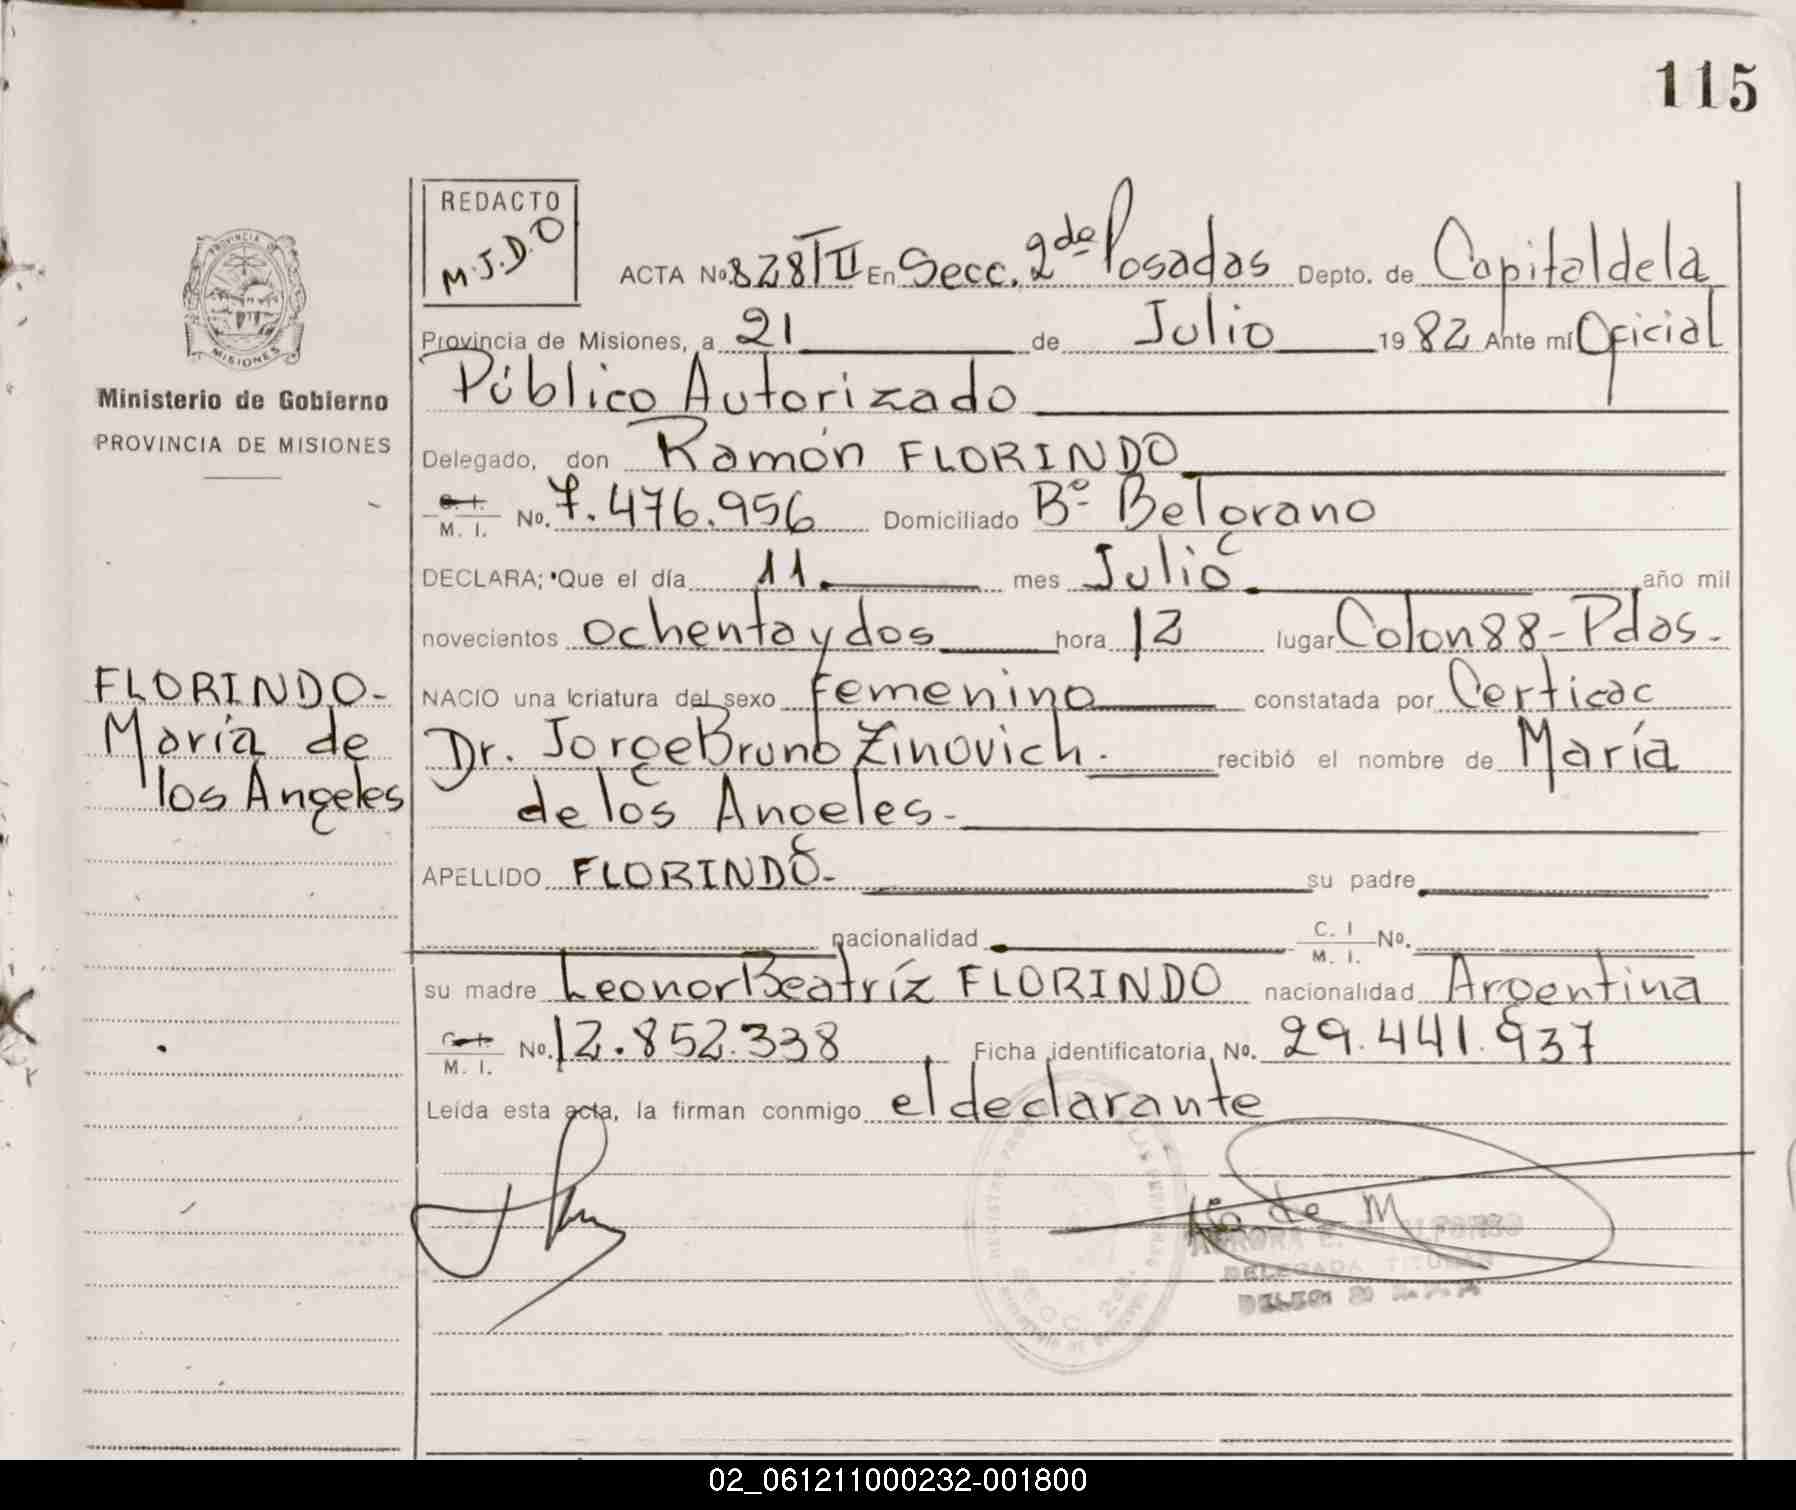 115
REDACTO
M.J.D.O
ACTA No. 828 TII En Secc. 2da Posadas Depto. de Capital de la
Provincia de Misiones, a 21 de Julio 1982 Ante mí Oficial
Público Autorizado
Delegado, don Ramón FLORINDO
C. I. M. I. No. 7.476.956 Domiciliado Bº Belgrano
DECLARA; Que el día 11. mes Julio año mil
novecientos ochenta y dos hora 12 lugar Colon 88 - Pdas.
NACIO una criatura del sexo femenino constatada por Certicac
Dr. Jorge Bruno Zinovich. recibió el nombre de María
de los Angeles-
APELLIDO FLORINDO- su padre
nacionalidad C. I M. I. No.
su madre Leonor Beatríz FLORINDO nacionalidad Argentina
C. I. M. I. No. 12.852.338 Ficha identificatoria No. 29.441.937
Leída esta acta, la firman conmigo el declarante
PROVINCIA DE
MISIONES
Ministerio de Gobierno
PROVINCIA DE MISIONES
FLORINDO-
María de
los Angeles
DELEGADA TITULAR
02_061211000232-001800